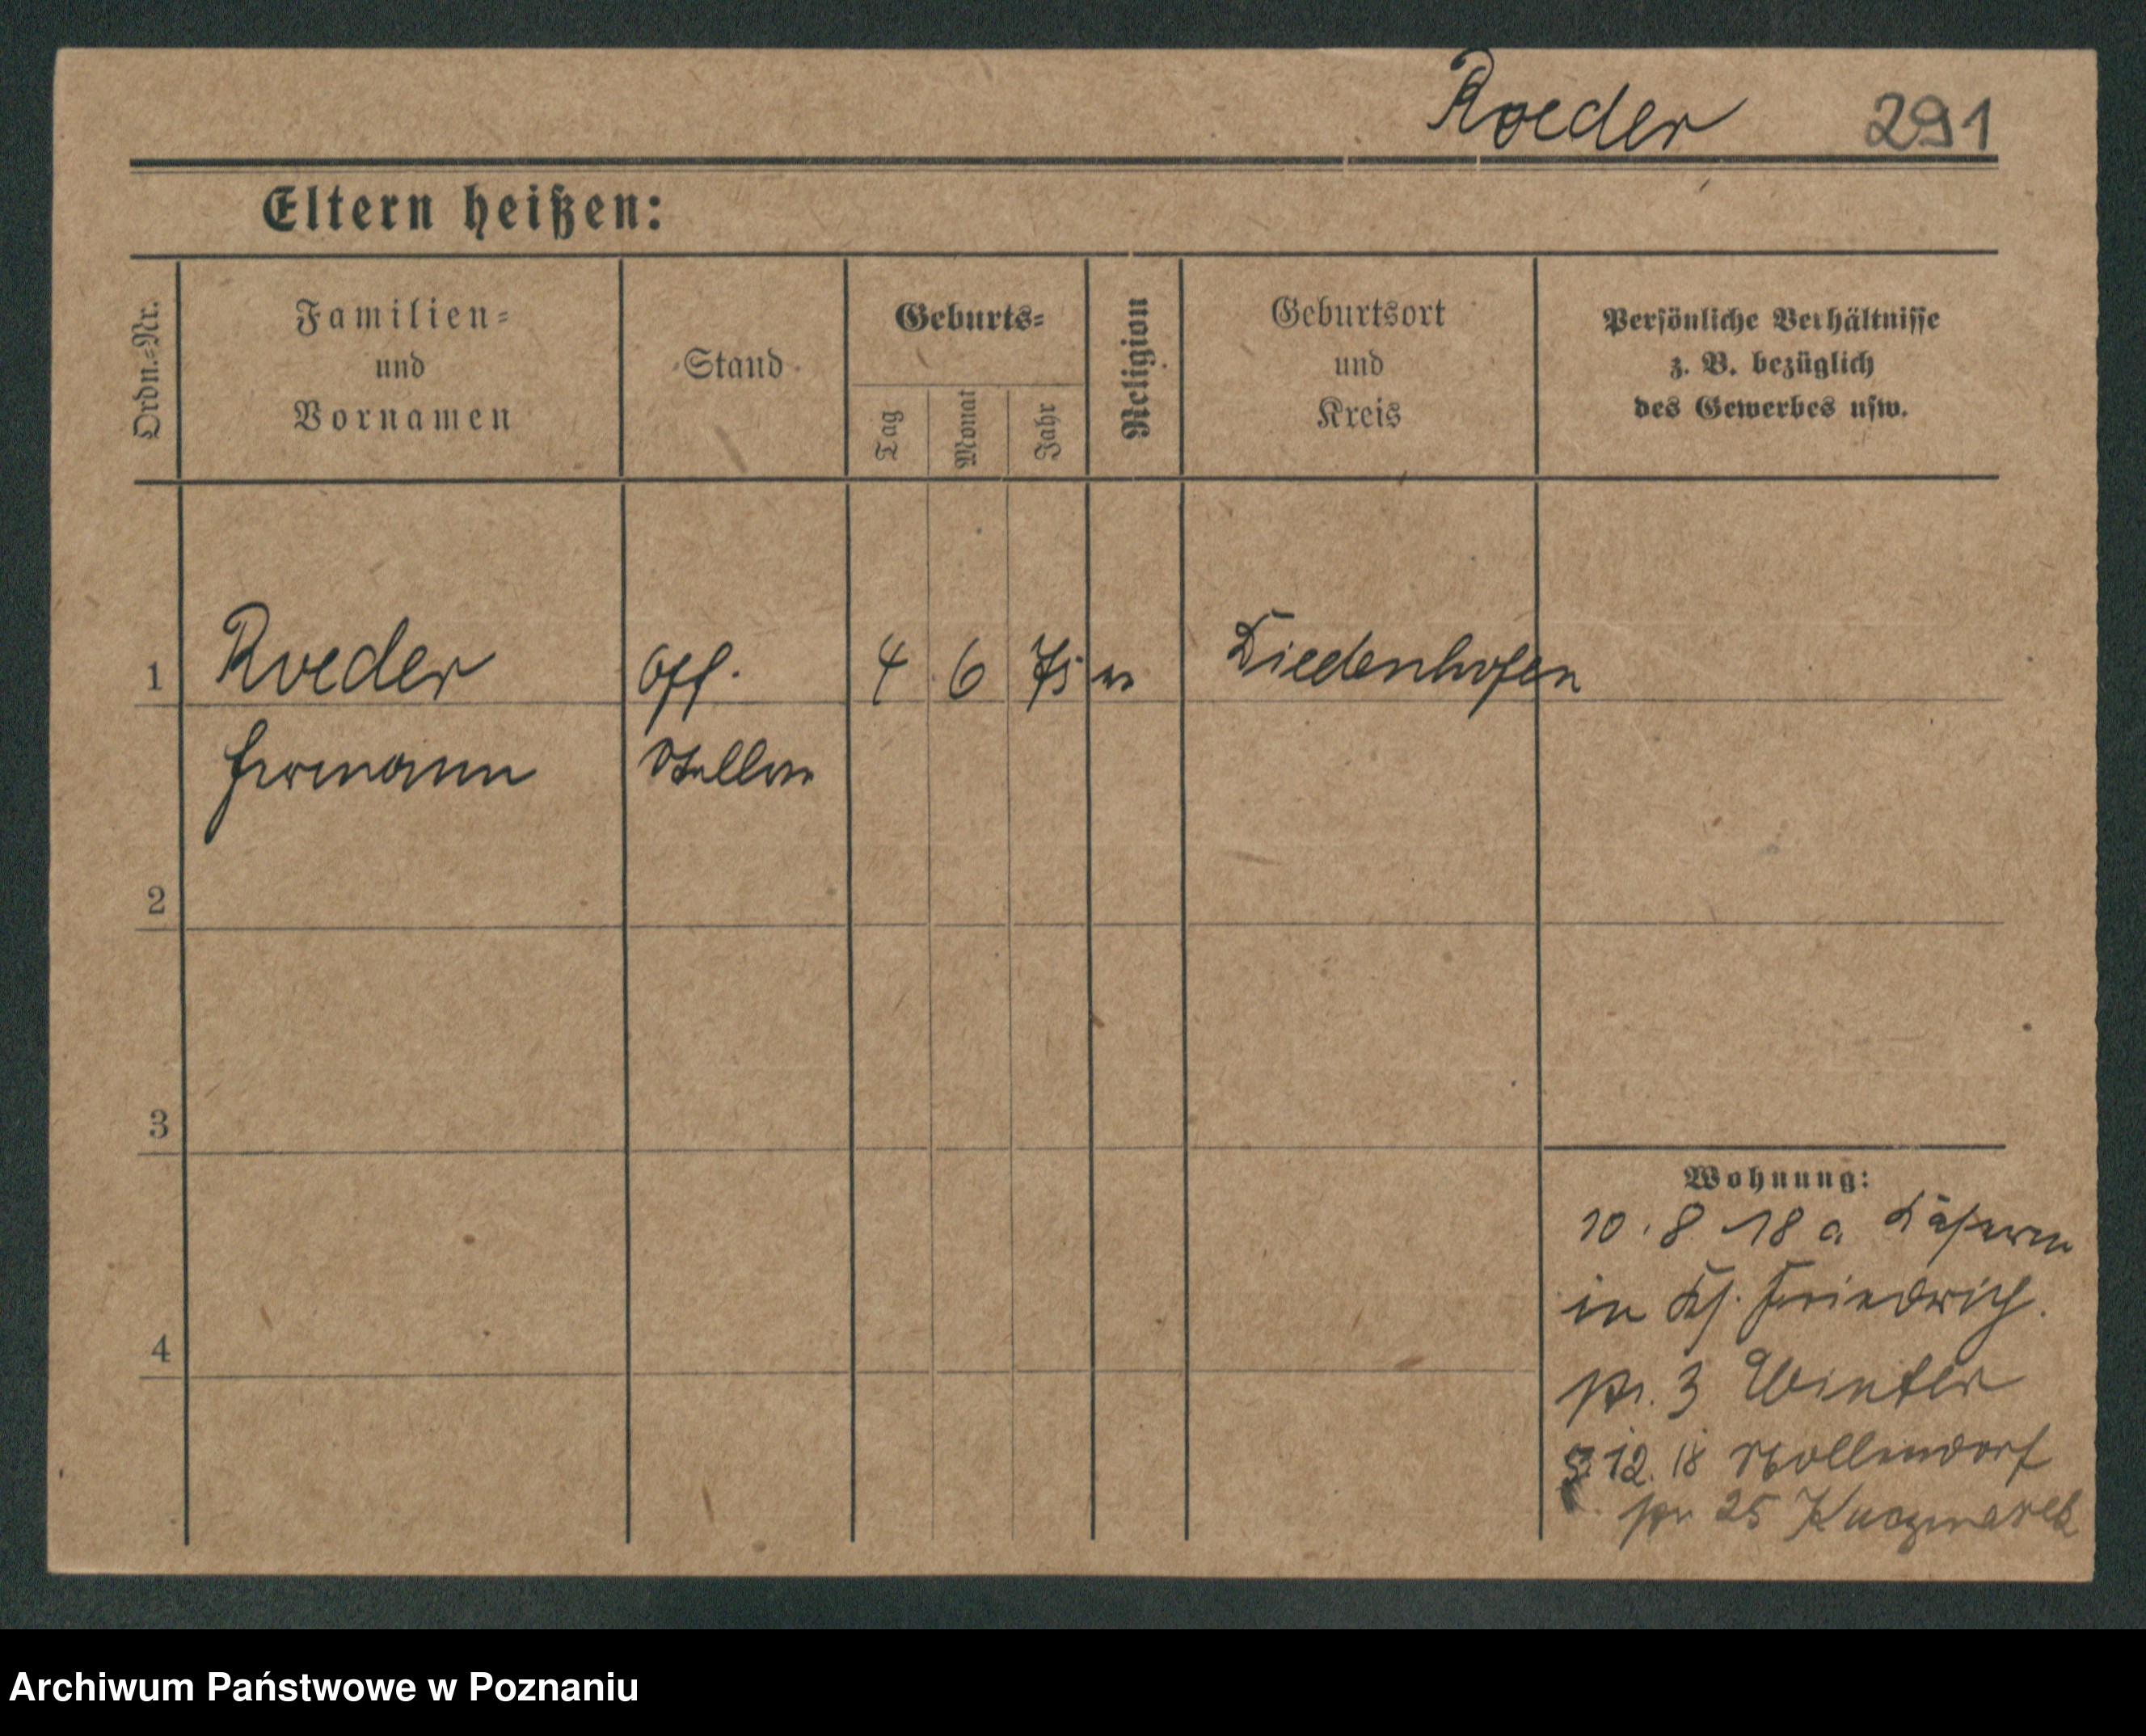 Roeder 291
Eltern heißen:
Ordn.=Nr.
Familien=
und
Vornamen
Stand
Geburts=
Tag
Monat
Jahr
Religion
Geburtsort
und
Kreis
Persönliche Verhältnisse
z. B. bezüglich
des Gewerbes usw.
1 Roeder Off. 4 6 75 Diedenhofen
Hermann Stellv.
2
3
4
Wohnung:
10. 8 18 a
in Friedrich.
pr. 3 Winter
12. 18 Nollendorf
25 Kuczmarek
Archiwum Państwowe w Poznaniu